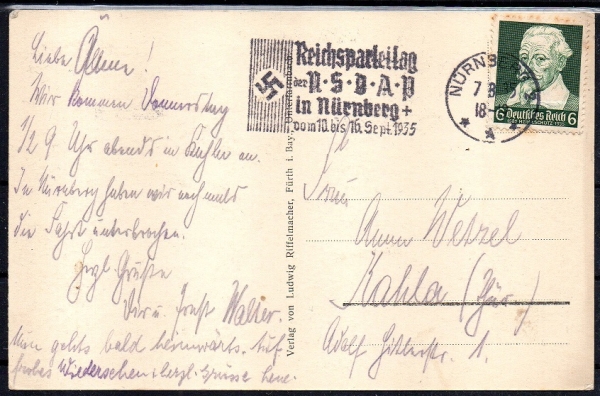 Liebe Änne!
Wir kommen Donnerstag
1/2 9 Uhr abends in Kahla an.
In Nürnberg haben wir nochmals
die Fahrt unterbrochen.
Herzl. Grüße
u. Ernst Walter.
Nun gehts bald heimwärts. Auf
frohes Wiedersehen u. herzl. Grüsse Lene.
Verlag von Ludwig Riffelmacher, Fürth i. Bay.,
Reichsparteitag
der N·S·D·A·P
in Nürnberg +
vom 10. bis 16. Sept. 1935
NÜRNBERG
7 8
18-
6 Deutsches Reich 6
Frau
Anna Wetzel
Kahla (Thür.)
Adolf Hitlerstr. 1.